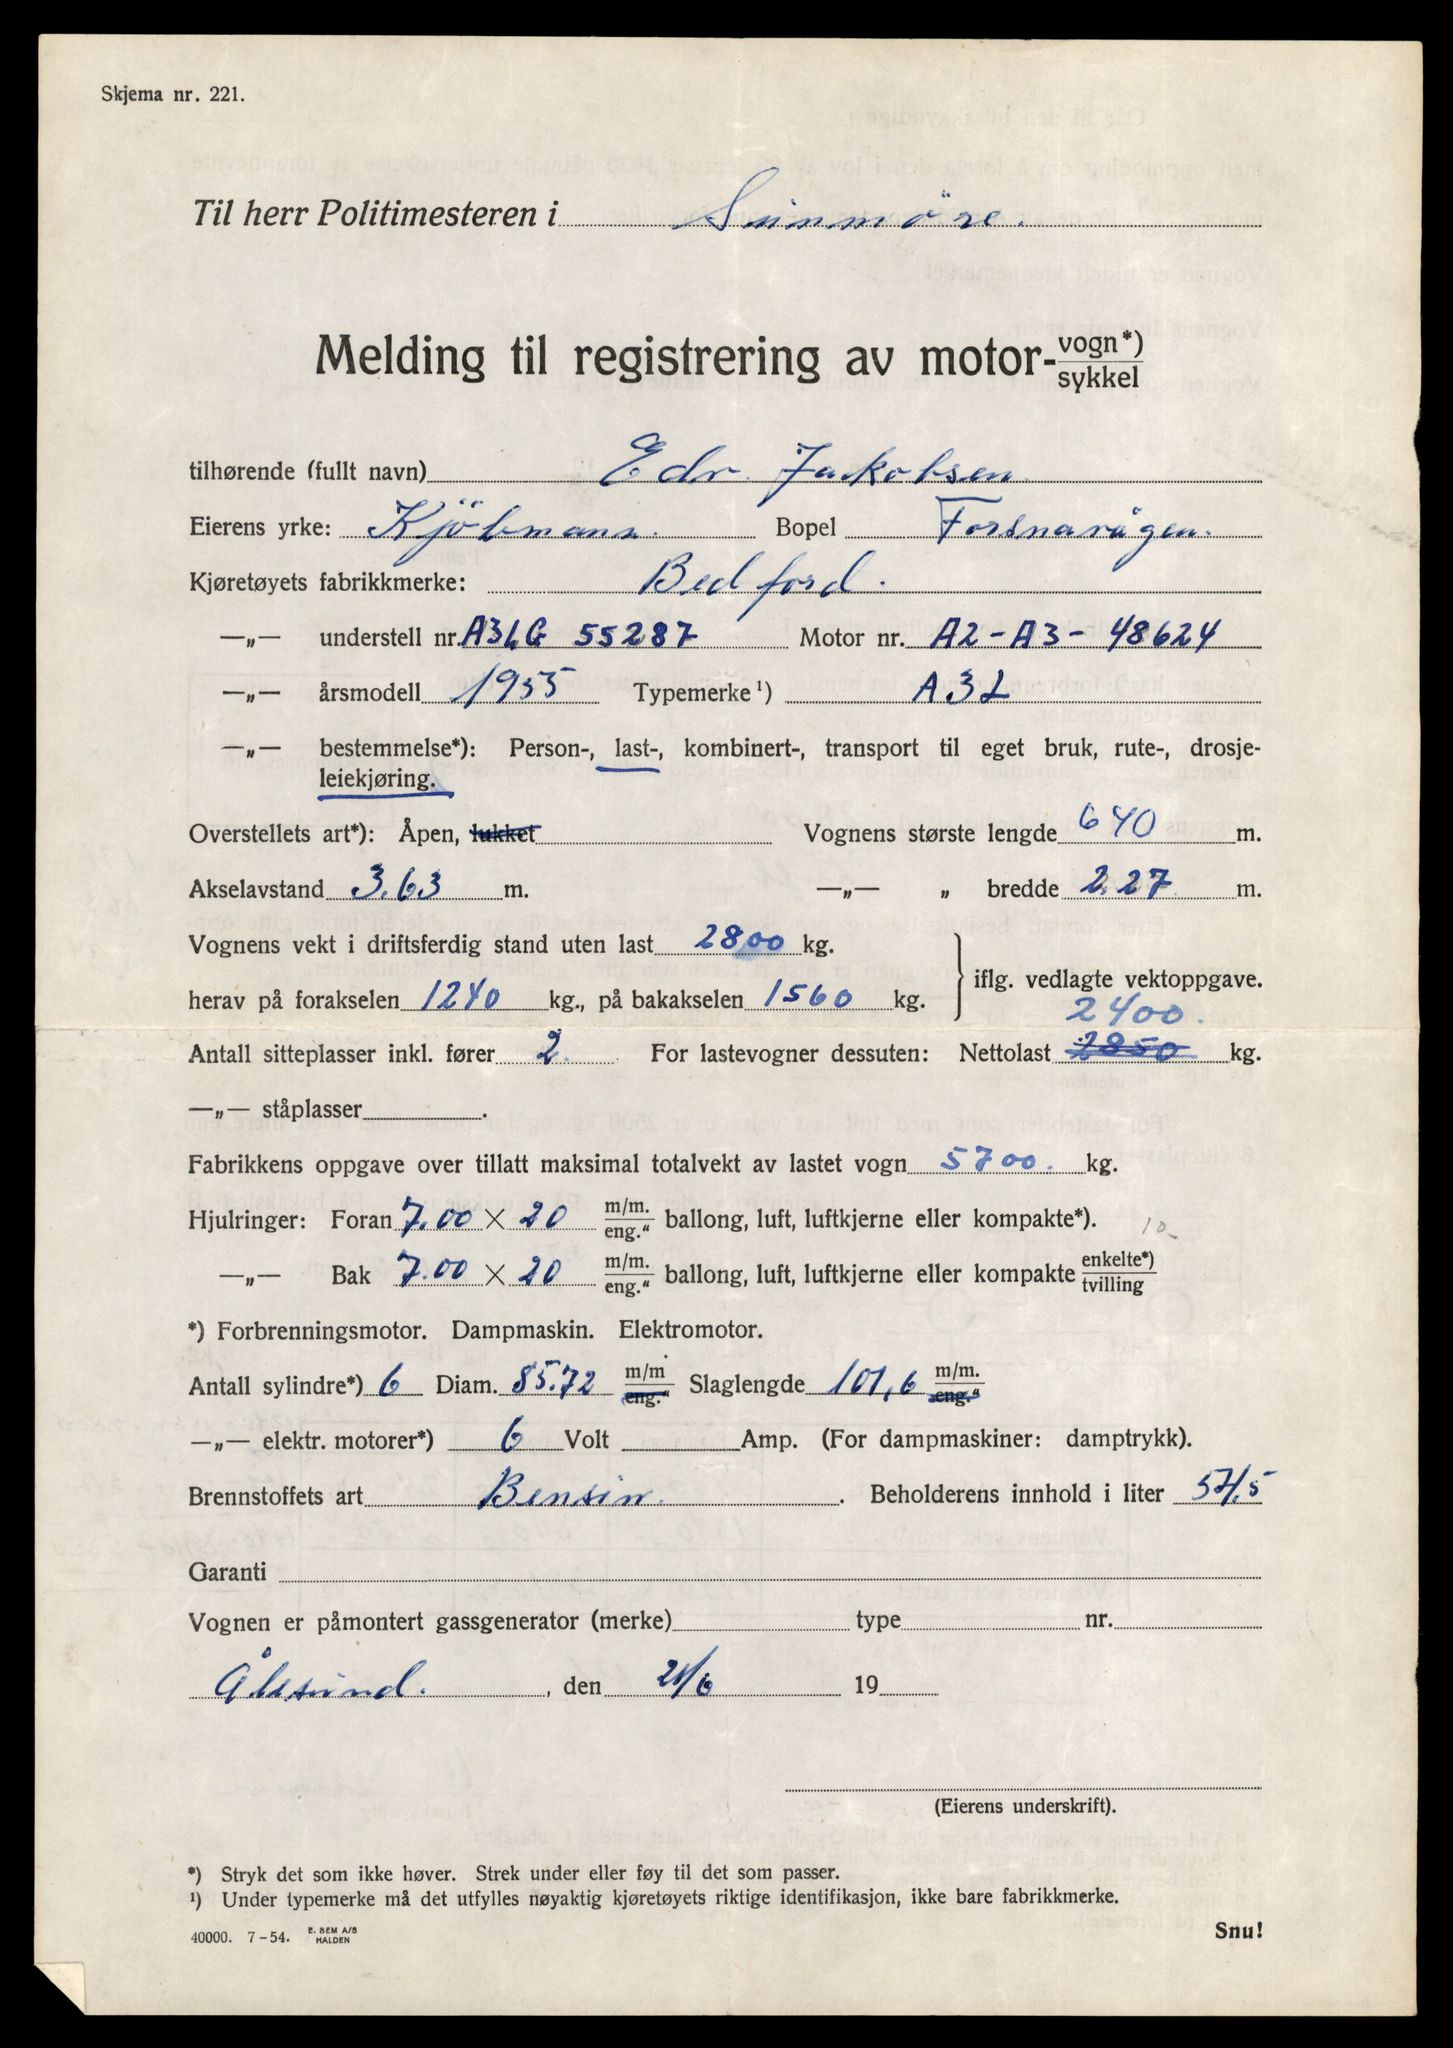 Skjema nr. 221.
Til herr Politimesteren i Sunmöre.
Melding til registrering av motor-vogn*)
sykkel
tilhørende (fullt navn) Edv. Jakobsen.
Eierens yrke: Kjöbmann. Bopel Fosnavågen.
Kjøretøyets fabrikkmerke: Bedford.
—„— understell nr. A3LG 55287 Motor nr. A2-A3-48624
—„— årsmodell 1955 Typemerke¹) A3L
—„— bestemmelse*): Person-, last-, kombinert-, transport til eget bruk, rute-, drosje-
leiekjøring.
Overstellets art*): Åpen, lukket Vognens største lengde 640 m.
Akselavstand 3.63 m. —„— „ bredde 2.27 m.
Vognens vekt i driftsferdig stand uten last 2800 kg.
iflg. vedlagte vektoppgave.
herav på forakselen 1240 kg., på bakakselen 1560 kg.
2400.
Antall sitteplasser inkl. fører 2. For lastevogner dessuten: Nettolast 2850 kg.
—„— ståplasser .
Fabrikkens oppgave over tillatt maksimal totalvekt av lastet vogn 5700. kg.
Hjulringer: Foran 7.00 × 20 m/m. eng.“ ballong, luft, luftkjerne eller kompakte*). 10
—„— Bak 7.00 × 20 m/m. eng.“ ballong, luft, luftkjerne eller kompakte enkelte*) tvilling
*) Forbrenningsmotor. Dampmaskin. Elektromotor.
Antall sylindre*) 6 Diam. 85.72 m/m eng.“ Slaglengde 101,6 m/m. eng.“
—„— elektr. motorer*) 6 Volt Amp. (For dampmaskiner: damptrykk).
Brennstoffets art Bensin. . Beholderens innhold i liter 54,5
Garanti
Vognen er påmontert gassgenerator (merke) type nr.
Ålesund. , den 21/6 19
(Eierens underskrift).
*) Stryk det som ikke høver. Strek under eller føy til det som passer.
¹) Under typemerke må det utfylles nøyaktig kjøretøyets riktige identifikasjon, ikke bare fabrikkmerke.
40000. 7-54. E. SEM A/S HALDEN
Snu!